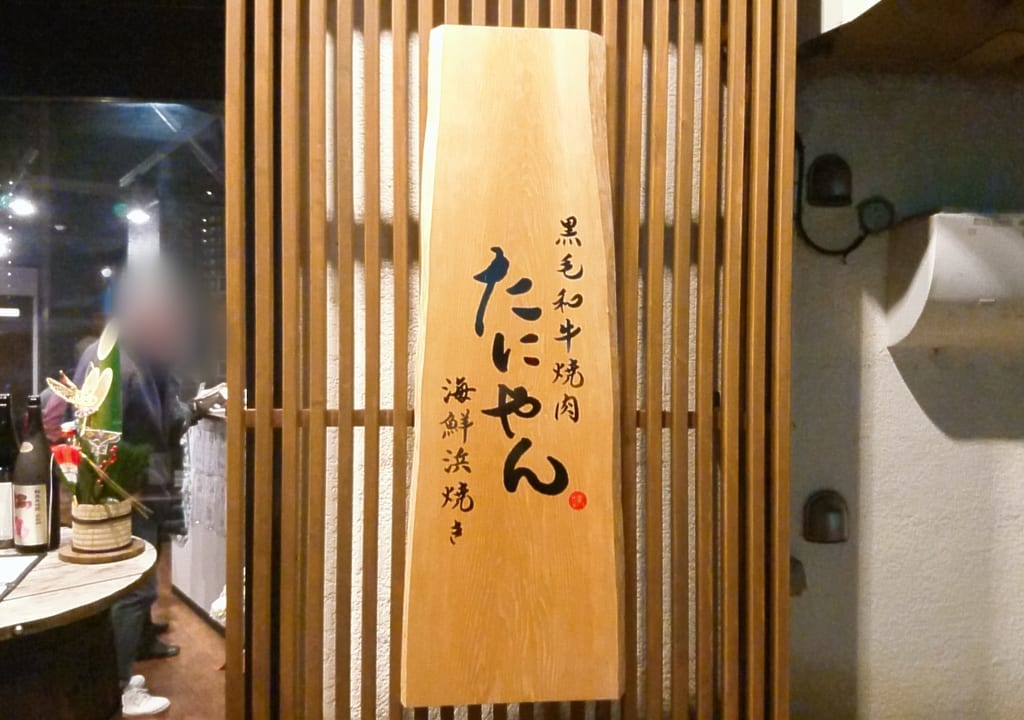 黒毛和牛焼肉
たにやん
海鮮浜焼き